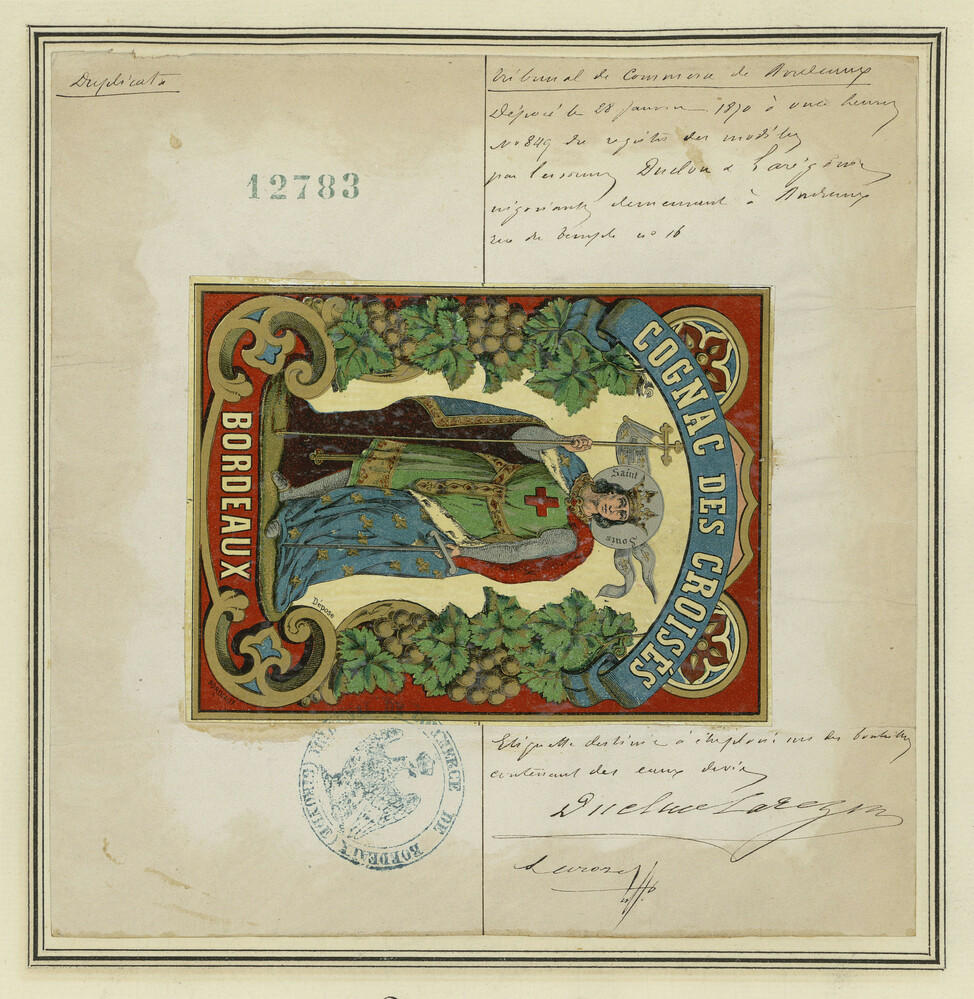 Duplicata
12783
Tribunal de Commerce de Bordeaux
Déposé le 28 janvier 1870 à onze heures
No 849 du registre des modèles
par les sieurs Duclou &
négociants demeurant à Bordeaux
rue du Temple no 16
COGNAC DES CROISÉS
Saint
Louis
BORDEAUX
Déposé
COMMERCE DE BORDEAUX (GIRONDE)
Etiquette destinée à être employée sur des bouteilles
contenant des eaux de vie